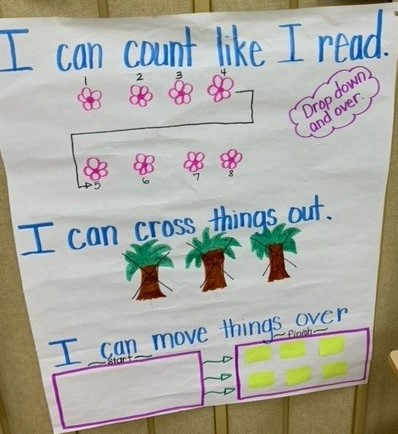 I can count like I read.
1 2 3 4
Drop down
and over.
5 6 7 8
I can cross things out.
I can move things over
Start
Finish